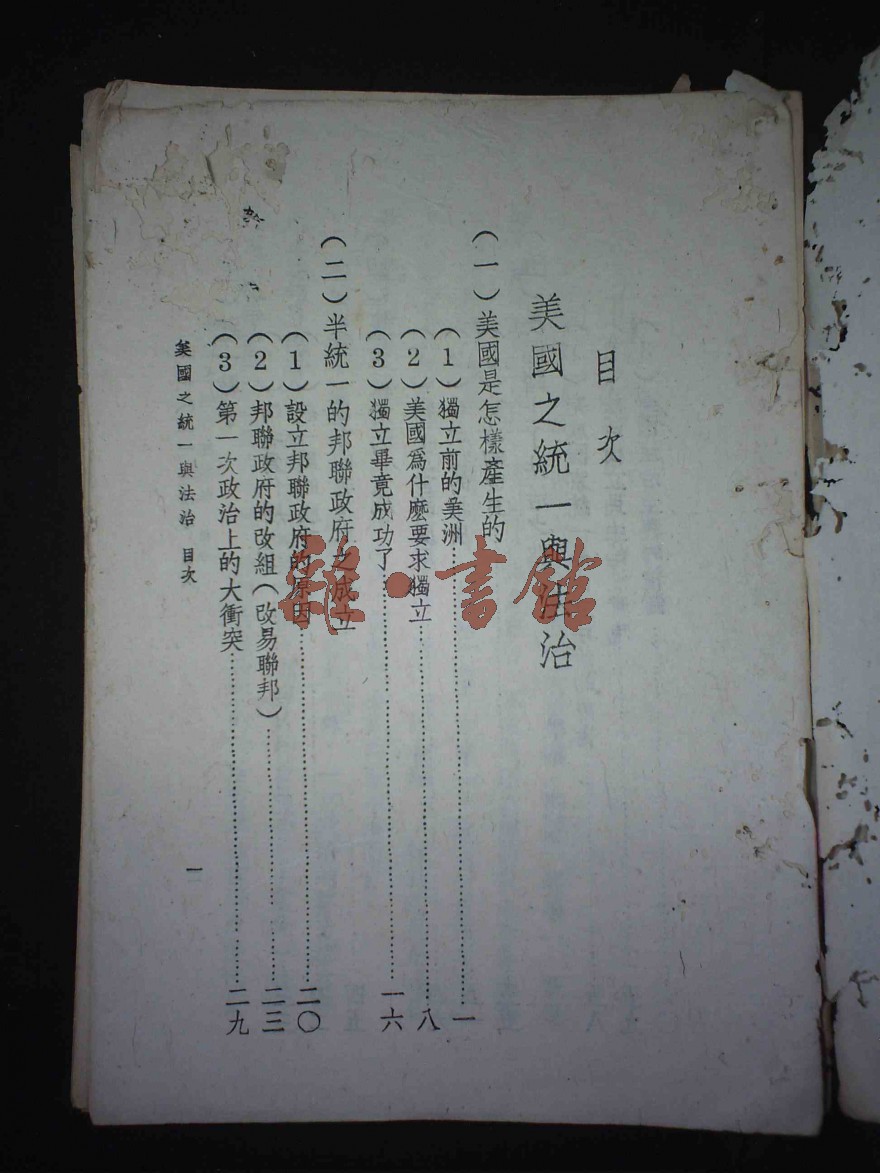 目次
美國之統一與法治
(一)美國是怎樣產生的
(1)獨立前的美洲……一
(2)美國爲什麼要求獨立……八
(3)獨立畢竟成功了……一六
(二)半統一的邦聯政府之成立
(1)設立邦聯政府的原因……二〇
(2)邦聯政府的改組(改易聯邦)……二三
(3)第一次政治上的大衝突……二九
美國之統一與法治 目次
一
雜·書館